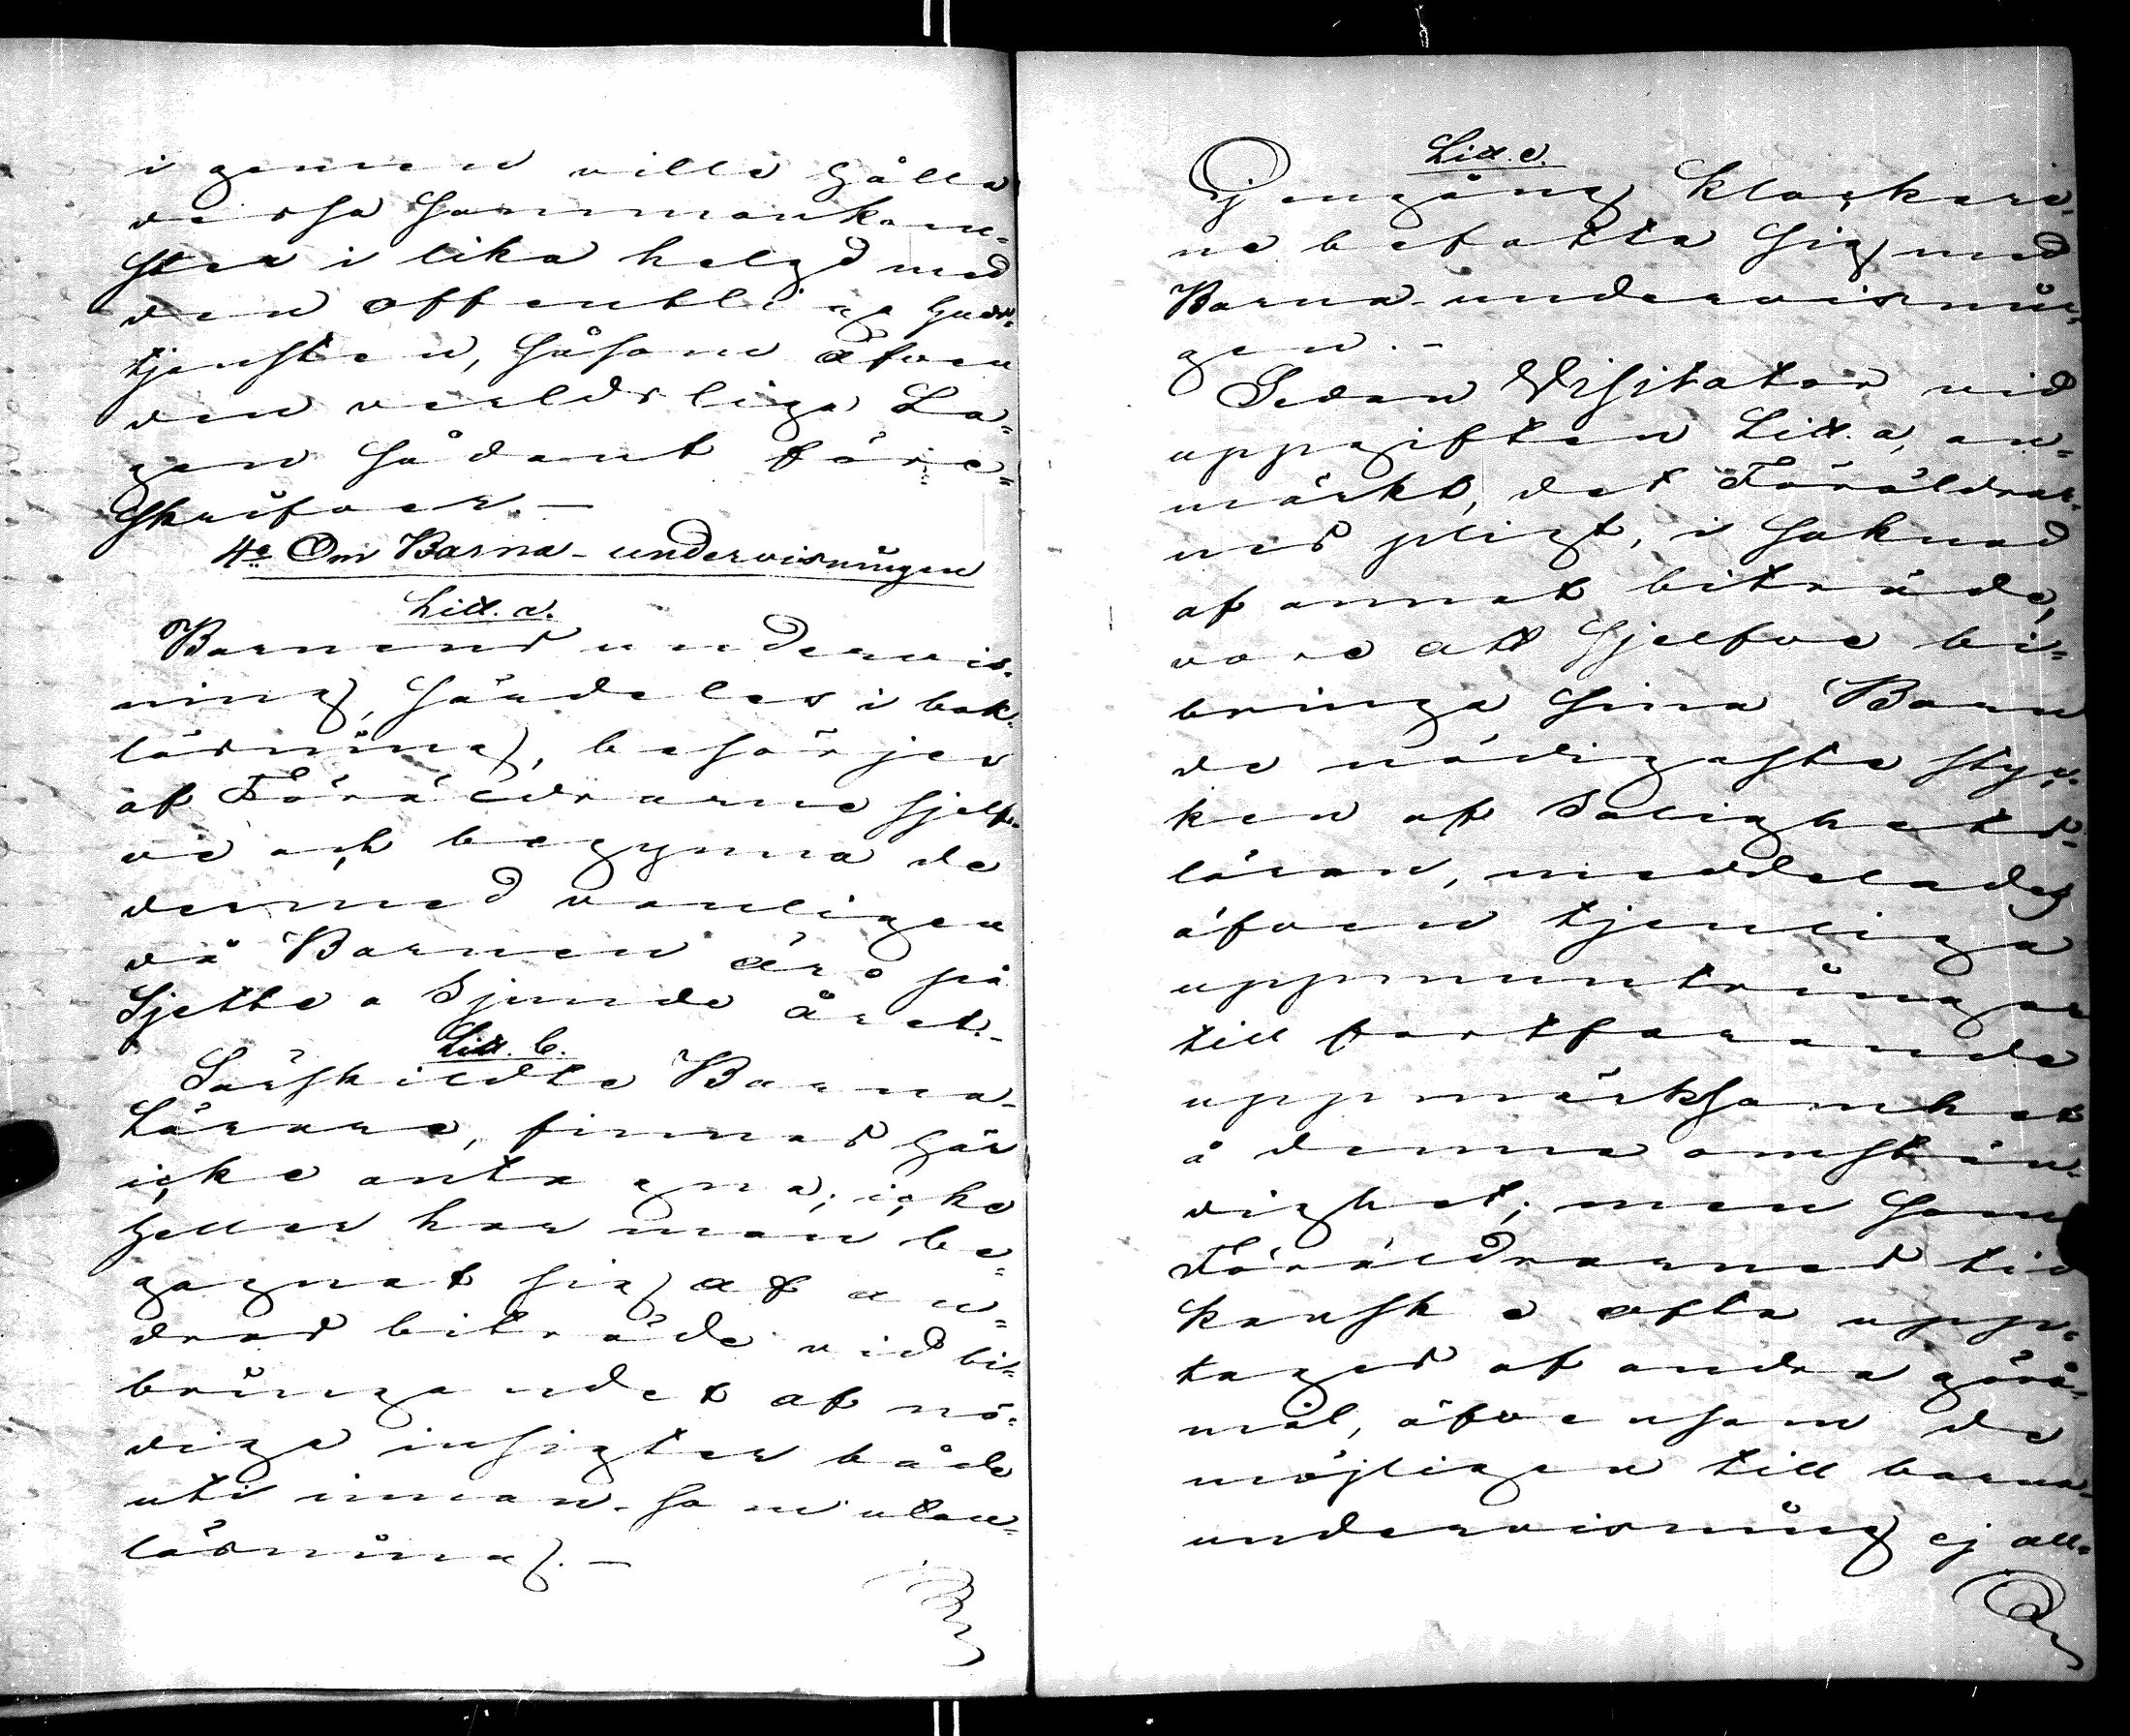 i gemen ville hålla
dessa Sammankom-
ster i lika helgd med
den offentliga Guds-
tjensten, såsom äfven
den verldsliga La-
gen sådant före-
skrifver.
4o Om Barna-undervisningen
Litt. a.
Barnens undervis-
ning, särdeles i bok-
läsning, besörjes
af Föräldrarne sjelf-
ve och begynna de
dermed vanligen
då Barnen äro på
Sjette a Sjunde året.
Litt. b.
Särskildte Barna-
Lärare, finnas här
icke antagna; icke
heller har man be-
gagnat sig af an-
dras biträde vid bi-
bringandet af nö-
diga insigter både
uti innan- som utan-
läsning.
Litt. c.
Ej en gång Klockare-
ne befatta sig med
Barna-undervisnin-
gen.
Sedan Visitator vid
uppgiften Litt. a, an-
märkt, det Föräldrar-
nes pligt, i saknad
af annat biträde,
vore att sjelfve bi-
bringa sina Barn
de nödigaste styc-
ken af Salighets-
läran, meddelades
äfven tjenliga
uppmuntringar
till fortfarande
uppmärksamhet
å denna omstän-
dighet; men som
Föräldrarnes tid
kanske ofta upp-
tages af andra görö-
mål, äfvensom de
möjligen till barna-
undervisning ej all-